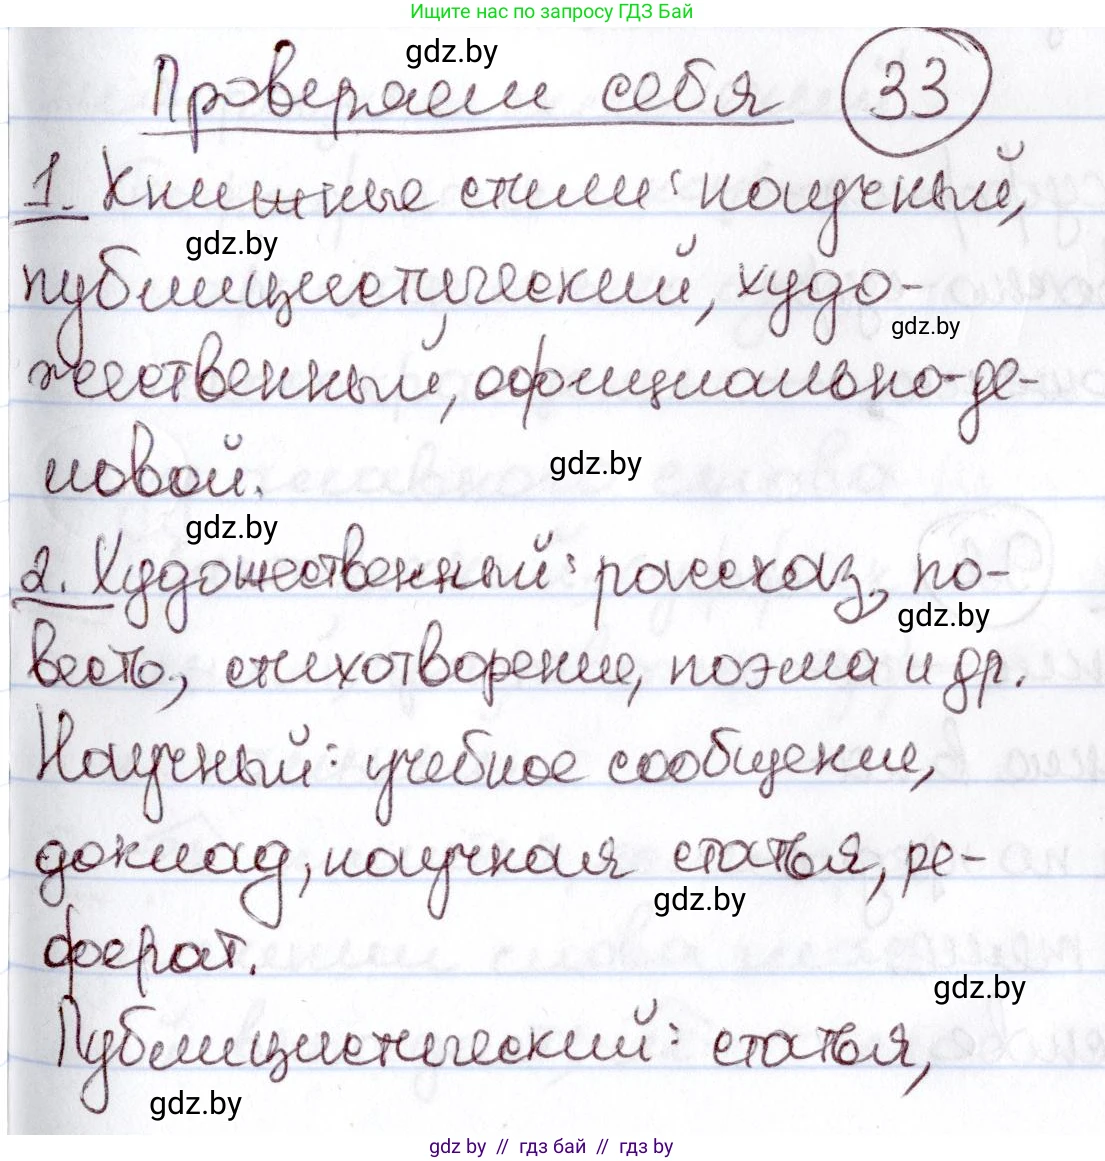 Ищите нас по запросу ГДЗ Бай
gdz.by
Проверяем себя 33
1. Книжные стили: научный,
gdz.by
публицистический, худо-
gdz.by
жественный, официально-де-
gdz.by
ловой.
gdz.by
2. Художественный: рассказ, по-
gdz.by
весть, стихотворение, поэма и др.
Научный: учебное сообщение,
доклад, научная статья, ре-
gdz.by
ферат.
gdz.by
Публицистический: статья,
gdz.by
gdz.by // гдз бай // гдз by